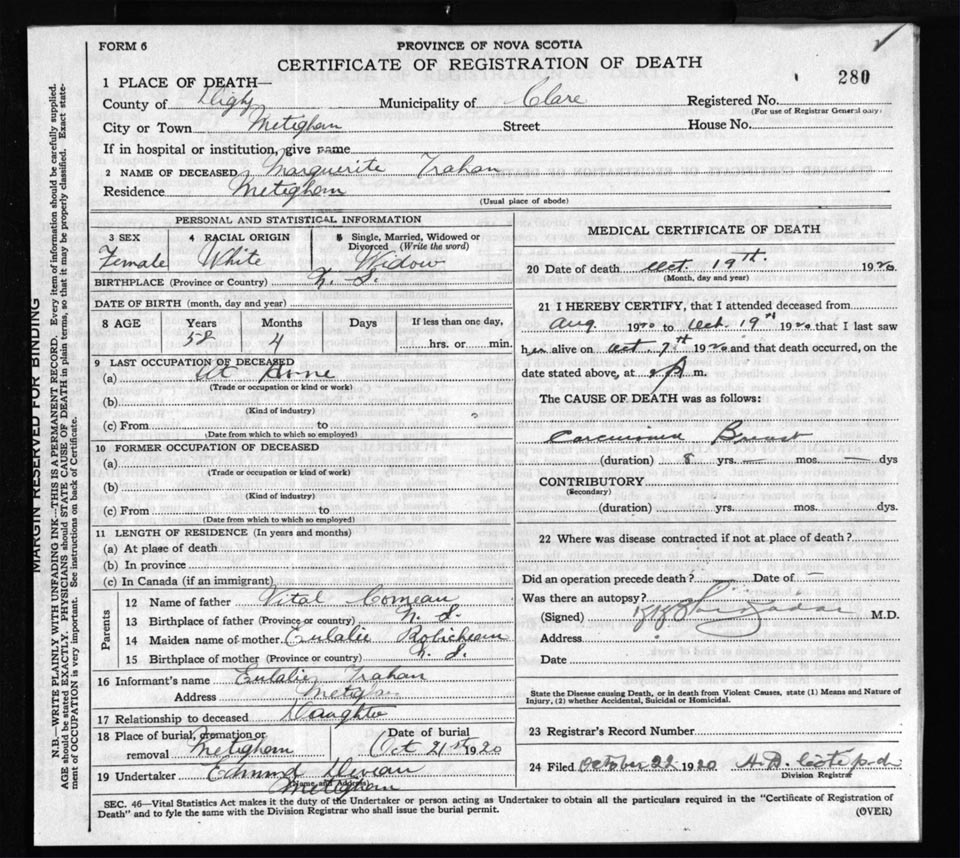 FORM 6
PROVINCE OF NOVA SCOTIA
CERTIFICATE OF REGISTRATION OF DEATH
280
1 PLACE OF DEATH—
County of Digby Municipality of Clare Registered No.
(For use of Registrar General only)
City or Town Meteghan Street House No.
If in hospital or institution, give name
2 NAME OF DECEASED Marguerite Trahan
Residence Meteghan
(Usual place of abode)
PERSONAL AND STATISTICAL INFORMATION
3 SEX 4 RACIAL ORIGIN 5 Single, Married, Widowed or Divorced (Write the word)
Female White Widow
BIRTHPLACE (Province or Country) N. S.
DATE OF BIRTH (month, day and year)
8 AGE Years Months Days If less than one day,
58 4 hrs. or min.
9 LAST OCCUPATION OF DECEASED
(a) At Home
(Trade or occupation or kind of work)
(b)
(Kind of industry)
(c) From to
(Date from which to which so employed)
10 FORMER OCCUPATION OF DECEASED
(a)
(Trade or occupation or kind of work)
(b)
(Kind of industry)
(c) From to
(Date from which to which so employed)
11 LENGTH OF RESIDENCE (In years and months)
(a) At place of death
(b) In province
(c) In Canada (if an immigrant)
Parents
12 Name of father Vital Comeau
13 Birthplace of father (Province or country) N. S.
14 Maiden name of mother Eulalie Robicheau
15 Birthplace of mother (Province or country) N. S.
16 Informant's name Eulalie Trahan
Address
17 Relationship to deceased Daughter
18 Place of burial, cremation or removal Meteghan
Date of burial Oct 21st 1920
19 Undertaker Edmund
(Name and Address)
Meteghan
MEDICAL CERTIFICATE OF DEATH
20 Date of death Oct. 19th. 1920
(Month, day and year)
21 I HEREBY CERTIFY, that I attended deceased from
Aug. 1920 to Oct. 19th 1920 that I last saw
h er alive on Oct. 1920 and that death occurred, on the
date stated above, at m.
The CAUSE OF DEATH was as follows:
Carcinoma Breast
(duration) 8 yrs. — mos. — dys
CONTRIBUTORY
(Secondary)
(duration) yrs. mos. dys.
22 Where was disease contracted if not at place of death?
Did an operation precede death? Date of —
Was there an autopsy?
(Signed) M.D.
Address
Date
State the Disease causing Death, or in death from Violent Causes, state (1) Means and Nature of
Injury, (2) whether Accidental, Suicidal or Homicidal.
23 Registrar's Record Number
24 Filed October 22 1920
Division Registrar
SEC. 46—Vital Statistics Act makes it the duty of the Undertaker or person acting as Undertaker to obtain all the particulars required in the "Certificate of Registration of
Death" and to fyle the same with the Division Registrar who shall issue the burial permit.
(OVER)
MARGIN RESERVED FOR BINDING
N.B.—WRITE PLAINLY WITH UNFADING INK—THIS IS A PERMANENT RECORD. Every item of information should be carefully supplied.
AGE should be stated EXACTLY. PHYSICIANS should STATE CAUSE OF DEATH in plain terms, so that it may be properly classified. Exact statement of OCCUPATION is very important. See instructions on back of Certificate.